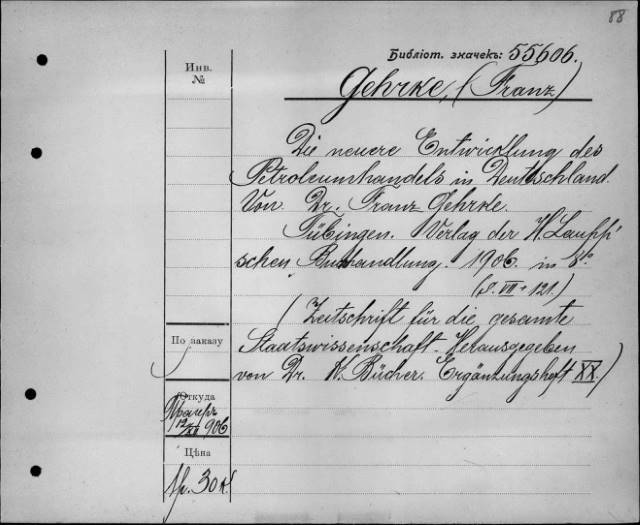 88
Библiот. значекъ: 55606.
Инв.
№
Gehrke, (Franz)
Die neuere Entwicklung des
Petroleumhandels in Deutschland.
Von Dr. Franz Gehrke.
Tübingen. Verlag der H. Laupp'
schen Buchhandlung. 1906. in 8°
(S. VIII + 121.)
(Zeitschrift für die gesamte
Staatswissenschaft. Herausgegeben
von Dr. K. Bücher. Ergänzungsheft XX.)
По заказу
Откуда
12/XII 906
Цѣна
1р. 30к.